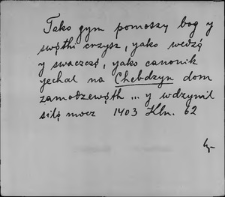 Tako gym pomoszy bog y
swøthi crzysz, yako wedzø
y swaczczø, yako canonik
jechal na Chebdzyn dom
zamotzewøth ... y wdzynil
silø mocz 1403 Kłn. 62